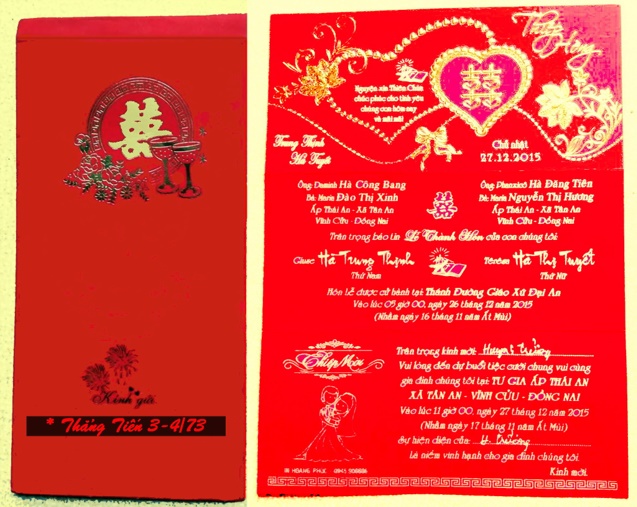 囍
Kính gửi
* Tháng Tiên 3-4/73
Thiệp Hồng
囍
Nguyện xin Thiên Chúa
chúc phúc cho tình yêu
chúng con hôm nay
và mãi mãi
Trung Thịnh
Hà Tuyết
Chủ nhật
27.12.2015
Ông: Daminh Hà Công Bang
Bà: Maria Đào Thị Xinh
Ấp Thái An - Xã Tân An
Vĩnh Cửu - Đồng Nai
囍
Ông: Phanxicô Hà Đăng Tiên
Bà: Maria Nguyễn Thị Hương
Ấp Thái An - Xã Tân An
Vĩnh Cửu - Đồng Nai
Trân trọng báo tin Lễ Thành Hôn của con chúng tôi:
Giuse Hà Trung Thịnh
Thứ Nam
Têrêsa Hà Thị Tuyết
Thứ Nữ
Hôn lễ được cử hành tại: Thánh Đường Giáo Xứ Đại An
Vào lúc 05 giờ 00, ngày 26 tháng 12 năm 2015
(Nhằm ngày 16 tháng 11 năm Ất Mùi)
Thiệp Mời
Trân trọng kính mời:
Vui lòng đến dự buổi tiệc cưới chung vui cùng
gia đình chúng tôi tại: TƯ GIA ẤP THÁI AN
XÃ TÂN AN - VĨNH CỬU - ĐỒNG NAI
Vào lúc 11 giờ 00, ngày 27 tháng 12 năm 2015
(Nhằm ngày 17 tháng 11 năm Ất Mùi)
Sự hiện diện của:
là niềm vinh hạnh cho gia đình chúng tôi.
Kính mời.
HOÀNG PHÚC 0943 908886